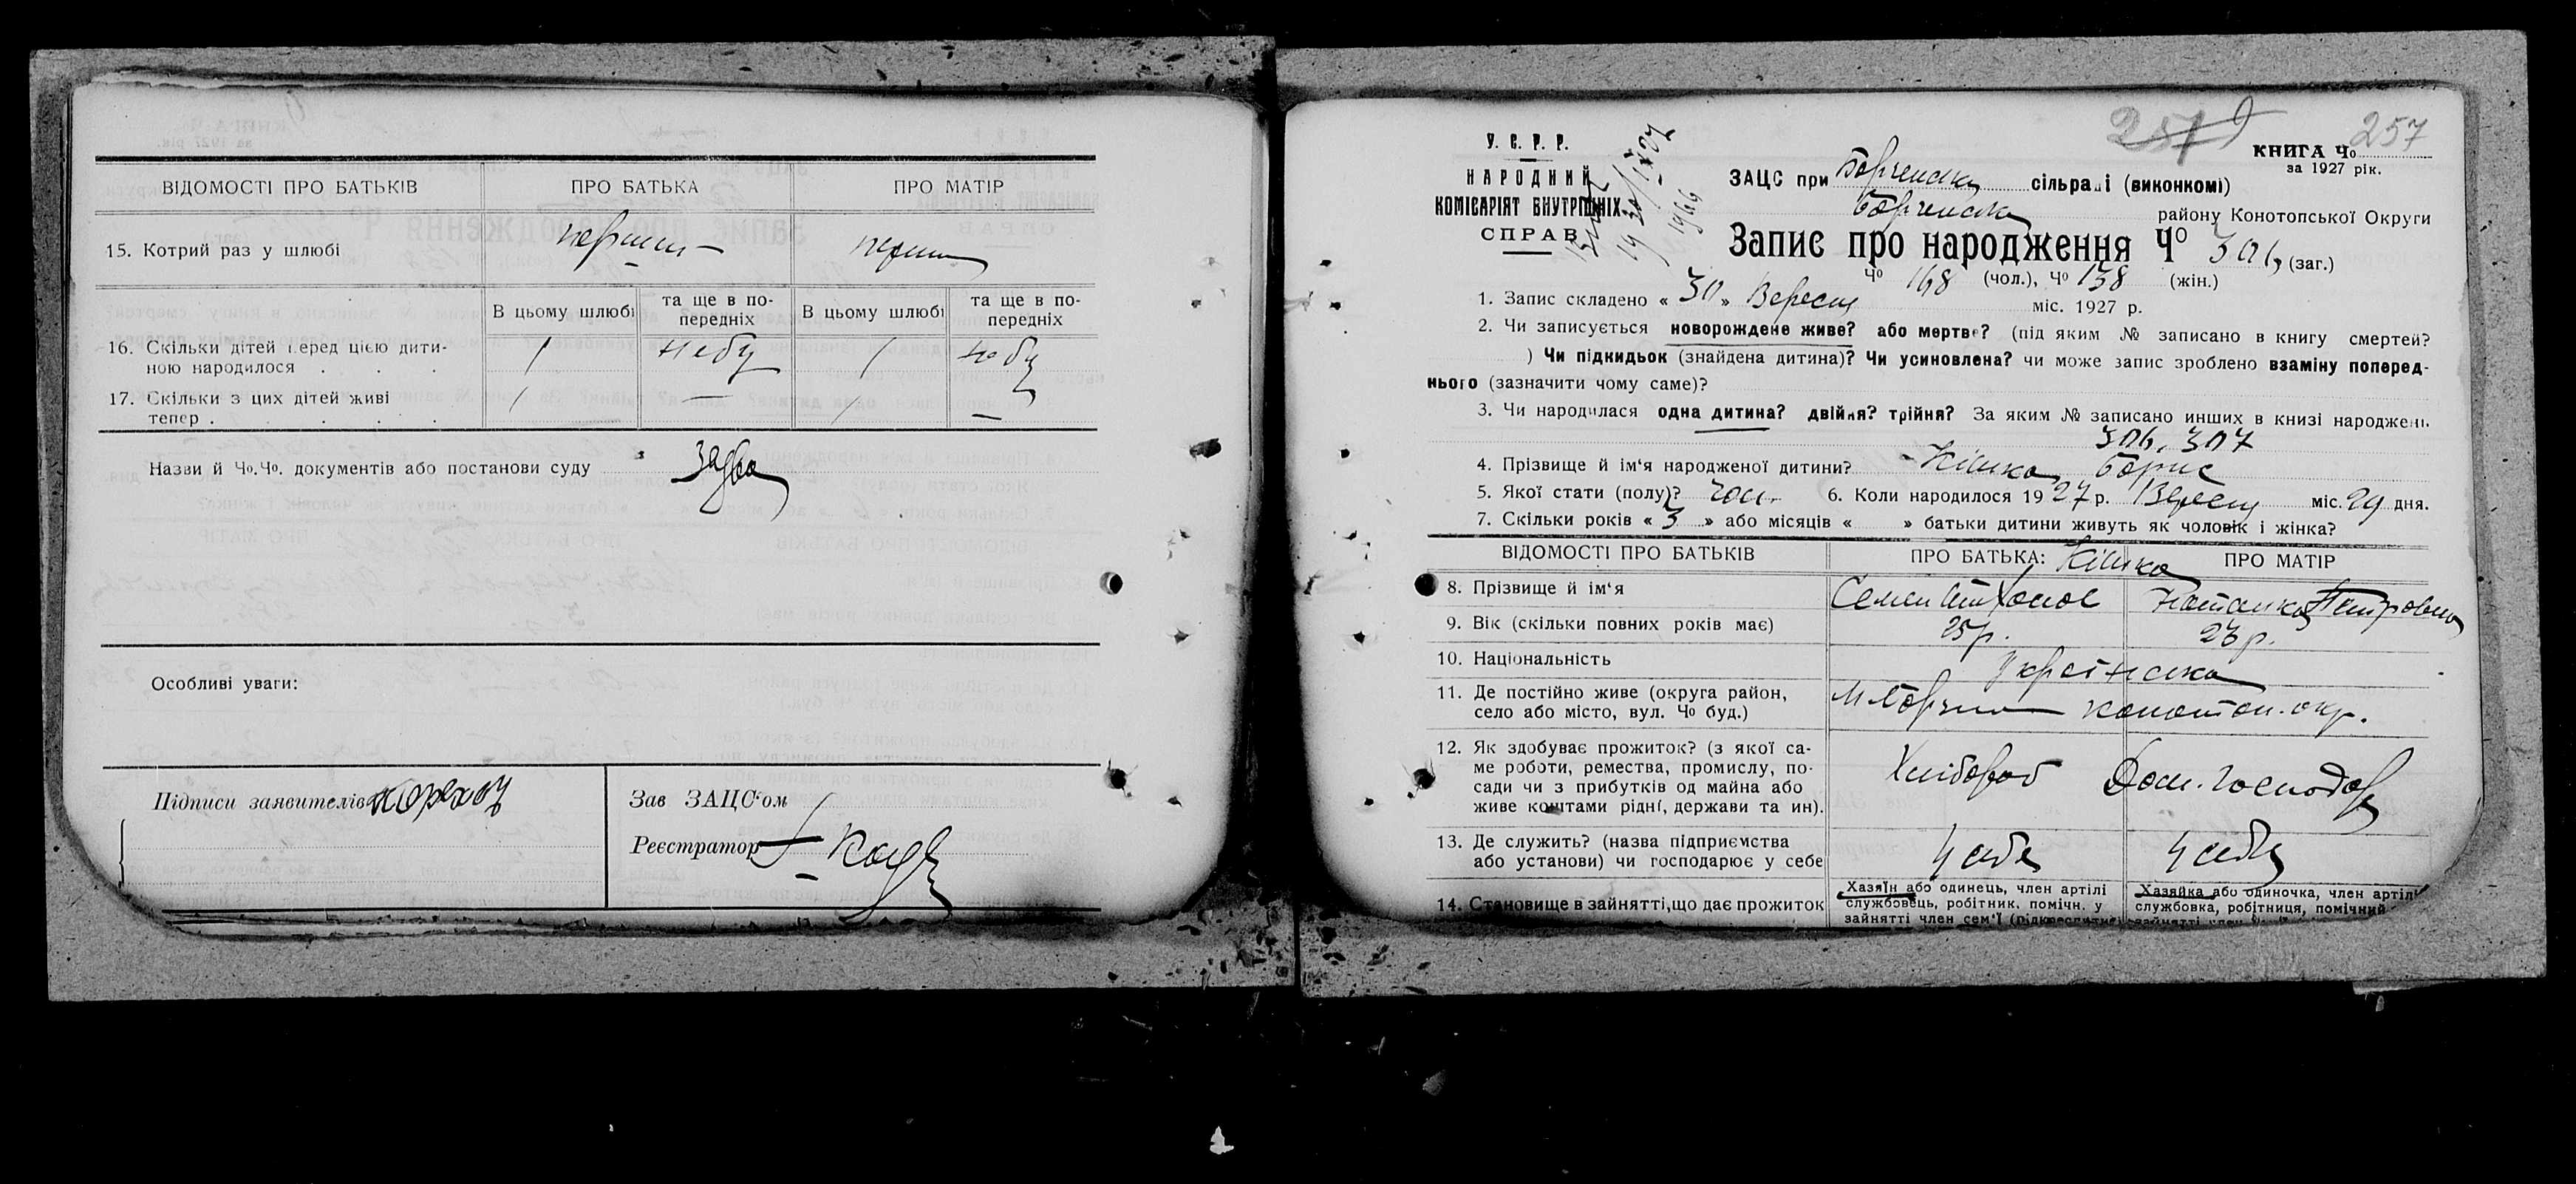 ВІДОМОСТІ ПРО БАТЬКІВ ПРО БАТЬКА ПРО МАТІР
15. Котрий раз у шлюбі перший перший
В цьому шлюбі та ще в попередніх В цьому шлюбі та ще в попередніх
16. Скільки дітей перед цією дити-
ною народилося . . . 1 1
17. Скільки з цих дітей живі
тепер . . . . 1 — 1 —
Назви й Чо.Чо. документів або постанови суду заява
Особливі уваги:
Підписи заявителів
Зав ЗАЦС'ом
Реєстратор
257
У. С. Р. Р.
НАРОДНИЙ
КОМІСАРІЯТ ВНУТРІШНІХ
СПРАВ
1966
КНИГА Чо 257
за 1927 рік.
ЗАЦС при Борзенській сільраді (виконкомі)
Борзенськ району Конотопської Округи
Запис про народження Чо 306 (заг.)
Чо 168 (чол.), Чо 138 (жін.)
1. Запис складено « 30 » Вересня міс. 1927 р.
2. Чи записується новорождене живе? або мертве? (під яким № записано в книгу смертей?
) Чи підкидьок (знайдена дитина)? Чи усиновлена? чи може запис зроблено взаміну поперед-
нього (зазначити чому саме)?
3. Чи народилася одна дитина? двійня? трійня? За яким № записано инших в книзі народжень
306, 307
4. Прізвище й ім'я народженої дитини? Кішка Борис
5. Якої стати (полу)? чол. 6. Коли народилося 1927 р. Вересня міс. 29 дня.
7. Скільки років « 3 » або місяців « » батьки дитини живуть як чоловік і жінка?
ВІДОМОСТІ ПРО БАТЬКІВ ПРО БАТЬКА: ПРО МАТІР
Кішка
8. Прізвище й ім'я Семен Наталка Петровна
9. Вік (скільки повних років має) 25 р. 23 р.
10. Національність Українська
11. Де постійно живе (округа район,
село або місто, вул. Чо буд.) м. Борзна конотоп. окр.
12. Як здобуває прожиток? (з якої са-
ме роботи, ремества, промислу, по-
сади чи з прибутків од майна або
живе коштами рідні, держави та ин). Хлібороб Дом. господар
13. Де служить? (назва підприємства
або установи) чи господарює у себе у себе у себе
14. Становище в зайнятті, що дає прожиток
Хазяїн або одинець, член артілі
службовець, робітник. помічн. у
зайнятті член сем'ї (підкреслити)
Хазяйка або одиночка, член артілі
службовка, робітниця, помічний